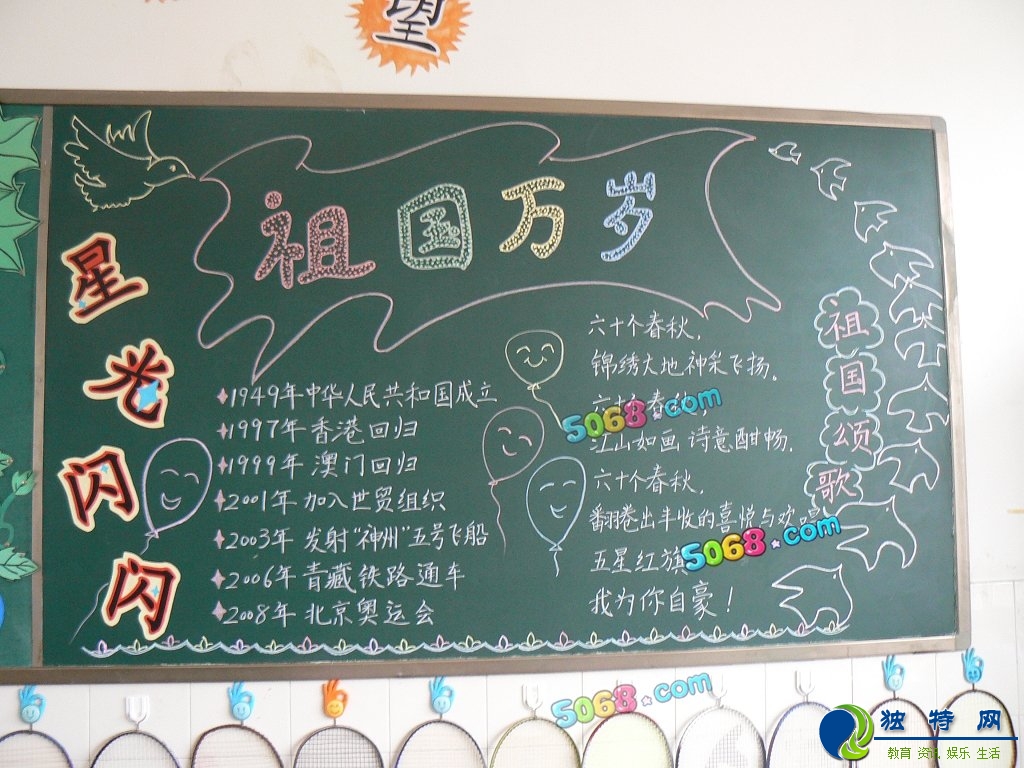 望
祖国万岁
星光闪闪
1949年中华人民共和国成立
1997年香港回归
1999年澳门回归
2001年加入世贸组织
2003年发射"神州"五号飞船
2006年青藏铁路通车
2008年北京奥运会
六十个春秋,
锦绣大地神彩飞扬。
六十个春秋,
江山如画 诗意酣畅.
六十个春秋,
翻卷出丰收的喜悦与欢唱
五星红旗
我为你自豪!
祖国颂歌
5068.com
5068.com
5068.com
独特网
教育 资讯 娱乐 生活